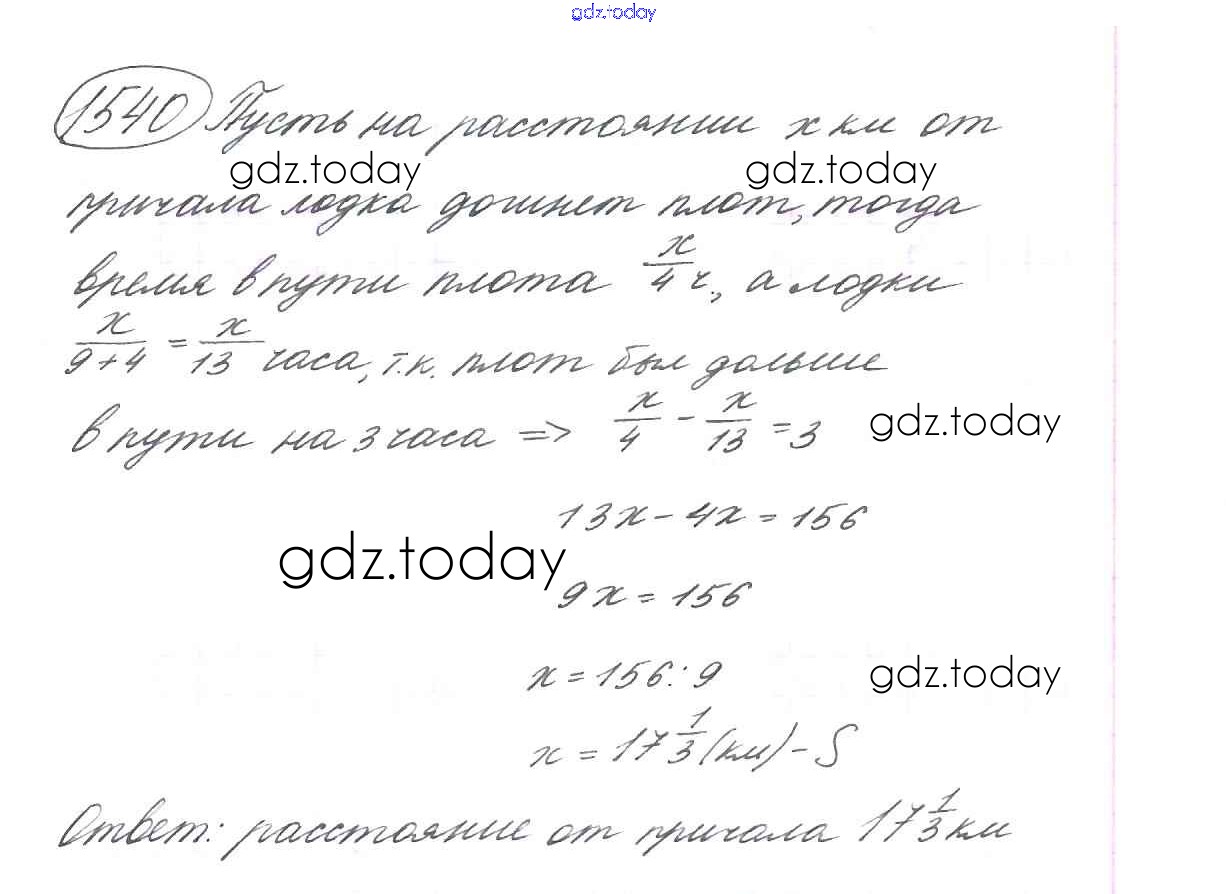 gdz.today
1540 Пусть на расстоянии x км от
gdz.today gdz.today
причала лодка догинет плот, тогда
время в пути плота x/4 ч., а лодки
x/9+4 = x/13 часа, т.к. плот был дольше
в пути на 3 часа => x/4 - x/13 = 3 gdz.today
13x - 4x = 156
gdz.today
9x = 156
x = 156 : 9 gdz.today
x = 17 1/3 (км) - S
Ответ: расстояние от причала 17 1/3 км